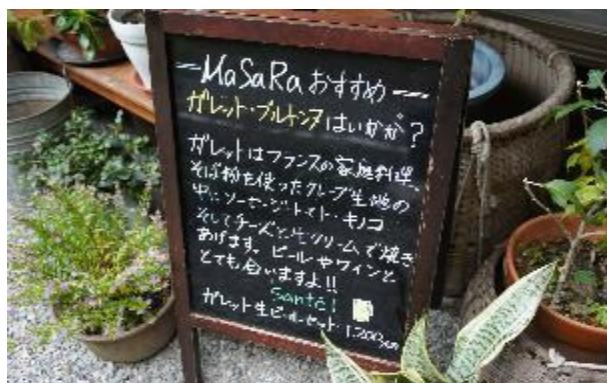 MaSaRa おすすめ
ガレット・ブルトンヌはいかが?
ガレットはフランスの家庭料理。
そば粉を使ったクレープ生地の
中にソーセージ・トマト・キノコ
そしてチーズと生クリームで焼き
あげます。ビールやワインと
とても合いますよ!!
Santé!
ガレット生ビールセット 1,200yen